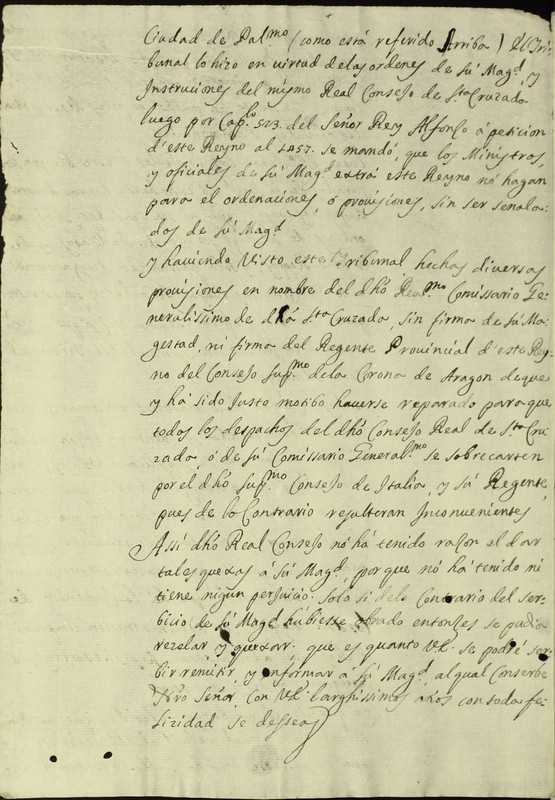 Ciudad de Palmo (como está referido Arriba) El Tri-
bunal lo hizo en virtud delas ordenes de sú Magd, y
Instruciones del mismo Real Consejo de Sta Cruzada
luego por Caplo 523. del Señor Rey Alfonso á peticion
d'este Reyno al 1457. se mandó, que los Ministros,
y oficiales de sú Magd extrá este Reyno nó hagan
para el ordenaciones, ó provisiones, sin ser senala-
dos de sú Magd
y haviendo Visto este Tribunal hechas diversas
provisiones en nombre del dhó Realmo Comissario Ge-
neralissimo de dhá Sta Cruzada, sin firma de sú Ma-
gestad, ni firma del Regente Provincial d'este Rey-
no del Consejo Supmo dela Corona de Aragon deque
y há sido Justo motibo haverse reparado paraque
todos los despachos del dhó Consejo Real de Sta Cru-
zada, ó de sú Comissario Generalmo se sobrecarten
por el dhó Supmo Consejo de Italia, y sú Regente,
pues de lo Contrario resulteran Inconvenientes
Assi dhó Real Consejo nó há tenido razon el dar
tales quexas á sú Magd, porque nó há tenido ni
tiene nigun perjuicio: Solo si dele Contrario del ser-
bicio de sú Magd húbiesse obrado entonses se pudia
rezelar y quexar: que es quanto se podré ser-
bir remitir, y informar a sú Magd, al qual Conserbe
Nro Señor, Con larghissimos años con toda fe-
lizidad se dessea